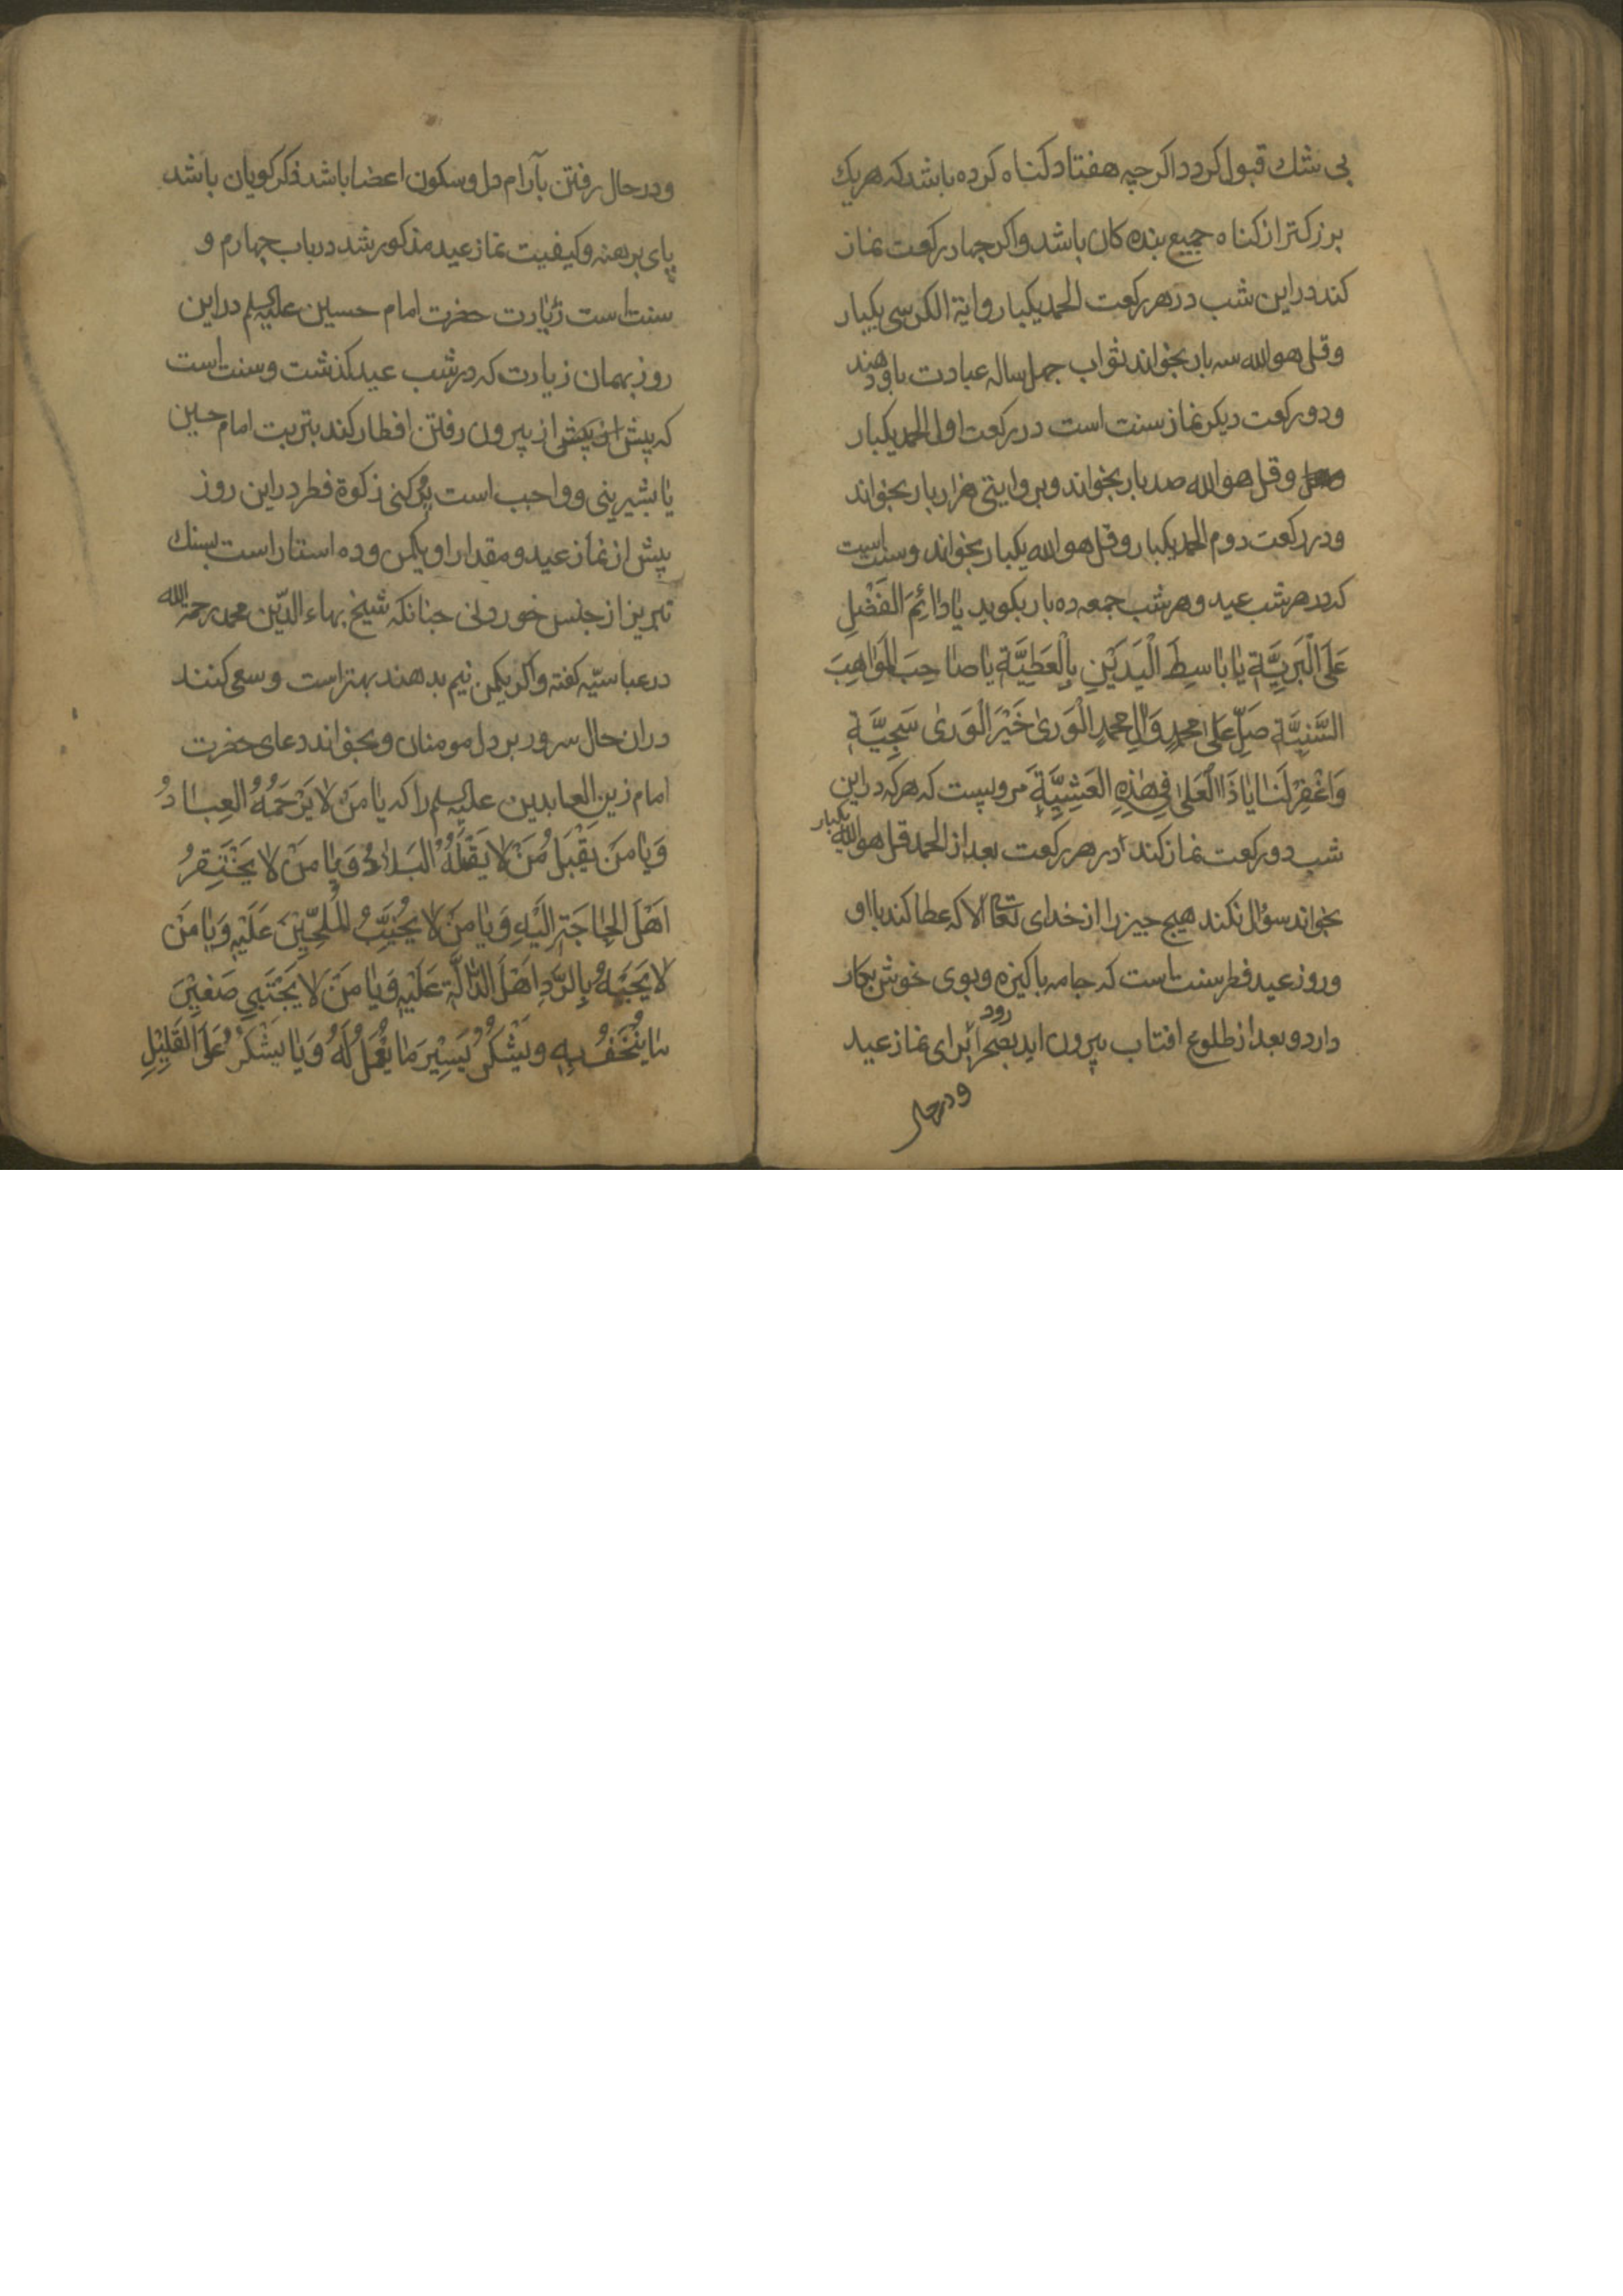 بی شك قبول کردد اکرچه هفتاد کناه کرده باشد که هریك
برزکتر از کناه جمیع بنده کان باشد و اکر جهار رکعت نماز
کند در این شب در هر رکعت الحمد یکبار و ایة الکرسی یکبار
و قل هو الله سه بار بخواند ثواب جهل ساله عبادت باو دهند
و دو رکعت دیکر نماز سنت است در رکعت اول الحمد یکبار
و قل هو الله صد بار بخواند و بروایتی هزار بار بخواند
و در رکعت دوم الحمد یکبار و قل هو الله یکبار بخواند و سنت است
که در هر شب عید و هر شب جمعه ده بار بکوید یٰا دٰائِمَ الفَضْلِ
عَلَی الْبَرِیَّةِ یٰا بٰاسِطَ الْیَدَیْنِ بِالْعَطِیَّةِ یٰا صٰاحِبَ الْمَوٰاهِبِ
السَّنِیَّةِ صَلِّ عَلیٰ محمدٍ وَاٰلِ محمدٍ الْوَریٰ خَیْرَ الْوَریٰ سَجِیَّةٍ
وَاغْفِرْ لَنٰا یٰا ذَا الْعُلیٰ فِی هٰذِهِ العَشِیَّةِ مرویست که هر که در این
شب دو رکعت نماز کند در هر رکعت بعد از الحمد قل هو الله یکبار
بخواند سؤال نکند هیج جیز را از خدای تعالی الا که عطا کند باو
و روز عید فطر سنت است که جامه باکیزه و بوی خوش بکار
دارد و بعد از طلوع افتاب بیرون اید بصحرا رود برای نماز عید
و در حال
و در حال رفتن بآرام دل و سکون اعضا باشد ذکر کویان باشد
پای برهنه و کیفیت نماز عید مذکور شد در باب چهارم و
سنت است زیارت حضرت امام حسین علیه السلم در این
روز بهمان زیارت که در شب عید کذشت و سنت است
که پیش از بیرون رفتن افطار کند بتربت امام حسین
یٰا بشیرینی و واجب است زکوة فطر در این روز
پیش از نماز عید و مقدار او یکمن و ده استار است بسنك
تبریز از جنس خوردنی جنانکه شیخ بهاء الدّین محمد رحمة الله
در عباسیّه کفته و اکر یکمن نیم بدهند بهتر است و سعی کنند
در ان حال سرور بر دل مومنان و بخواند دعای حضرت
امام زین العابدین علیه السلم را که یٰا مَنْ لٰا یَرْحَمُهُ العِبٰادُ
وَ یٰا مَنْ یَقْبَلُ مَنْ لٰا یَقْبَلُهُ الْبَلٰادُ وَ یٰا مَنْ لٰا یَحْتَقِرُ
اَهْلَ الْحٰاجَةِ اِلَیْهِ وَ یٰا مَنْ لٰا یُخَیِّبُ الْمُلِحّیْنَ عَلَیْهِ وَ یٰا مَنْ
لٰا یَجْبَهُ بِالرَّدِ اَهْلَ الدّٰالَّةِ عَلَیْهِ وَ یٰا مَنْ لٰا یَجْتَبِی صَغیْرَ
مٰا یُتْحَفُ بِهِ وَ یَشْکُرُ یَسِیْرَ مٰا یُعْمَلُ لَهُ وَ یٰا یَشْکُرُ عَلَی القَلِیْلِ